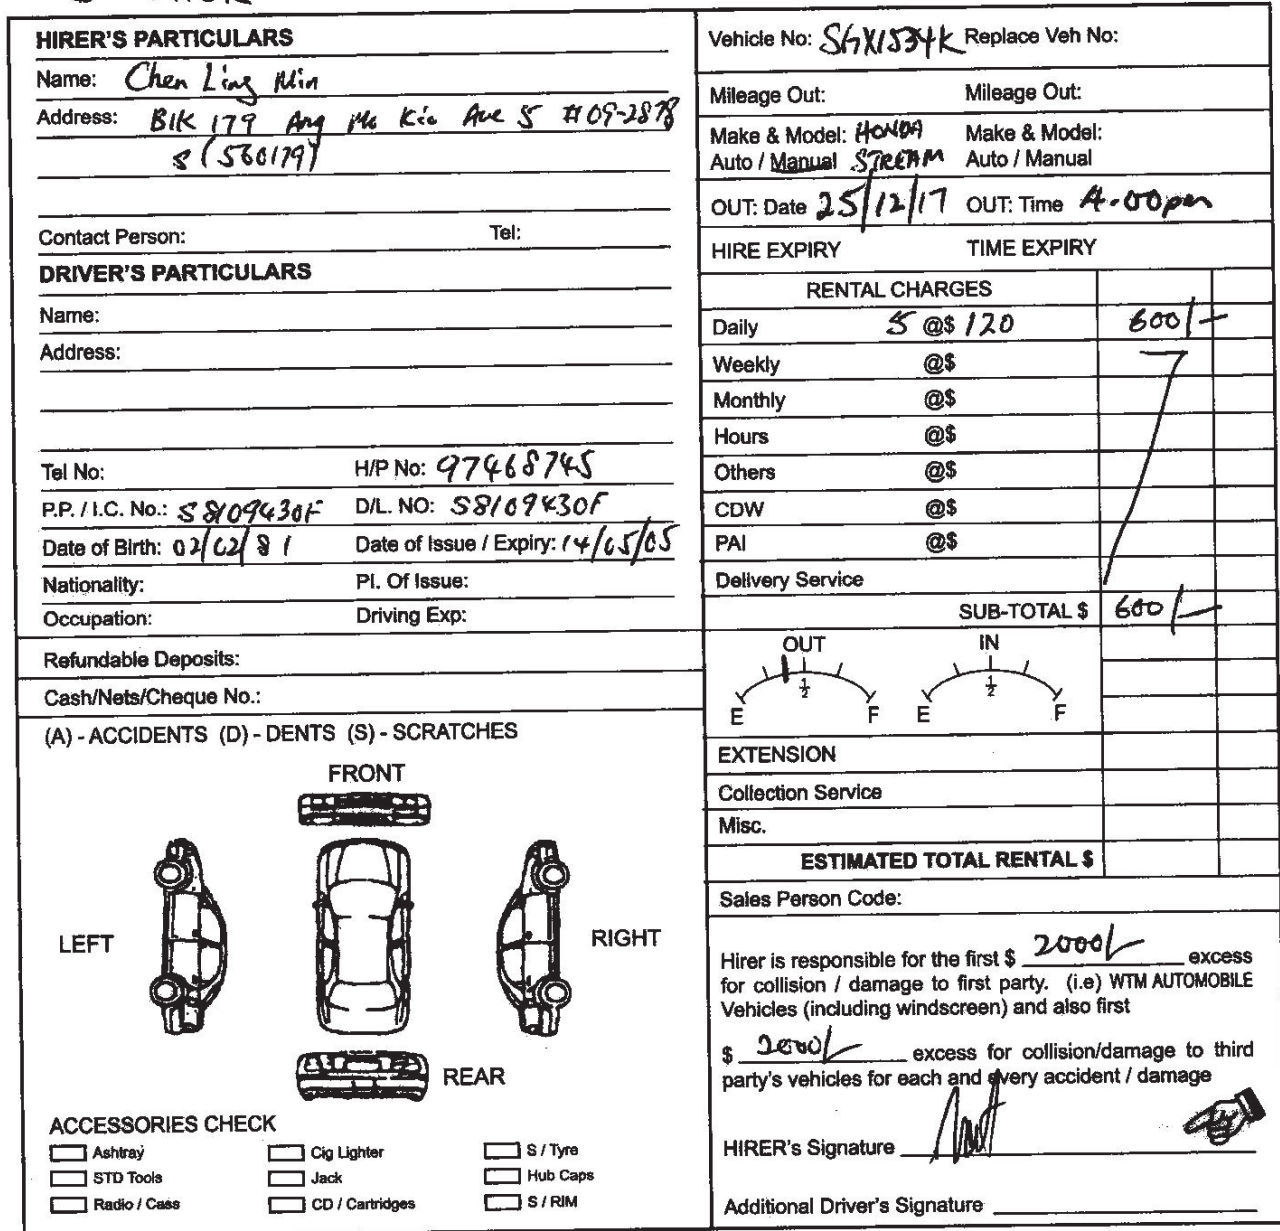 HIRER'S PARTICULARS
Name: Chen Ling Min
Address: Blk 179 Ang Mo Kio Ave 5 #09-2878
S (560179)
Contact Person: Tel:
DRIVER'S PARTICULARS
Name:
Address:
Tel No: H/P No: 97468745
P.P. / I.C. No.: S8109430F D/L. NO: S8109430F
Date of Birth: 02/02/81 Date of Issue / Expiry: 14/05/05
Nationality: Pl. Of Issue:
Occupation: Driving Exp:
Refundable Deposits:
Cash/Nets/Cheque No.:
(A) - ACCIDENTS (D) - DENTS (S) - SCRATCHES
FRONT
LEFT
RIGHT
REAR
ACCESSORIES CHECK
Ashtray Cig Lighter S / Tyre
STD Tools Jack Hub Caps
Radio / Cass CD / Cartridges S / RIM
Vehicle No: SGX1534K Replace Veh No:
Mileage Out: Mileage Out:
Make & Model: HONDA Make & Model:
Auto / Manual STREAM Auto / Manual
OUT: Date 25/12/17 OUT: Time 4.00pm
HIRE EXPIRY TIME EXPIRY
RENTAL CHARGES
Daily 5 @$ 120 600/-
Weekly @$
Monthly @$
Hours @$
Others @$
CDW @$
PAI @$
Delivery Service
SUB-TOTAL $ 600/-
OUT IN
½ ½
E F E F
EXTENSION
Collection Service
Misc.
ESTIMATED TOTAL RENTAL $
Sales Person Code:
Hirer is responsible for the first $ 2000/- excess
for collision / damage to first party. (i.e) WTM AUTOMOBILE
Vehicles (including windscreen) and also first
$ 2000/- excess for collision/damage to third
party's vehicles for each and every accident / damage
HIRER's Signature
Additional Driver's Signature